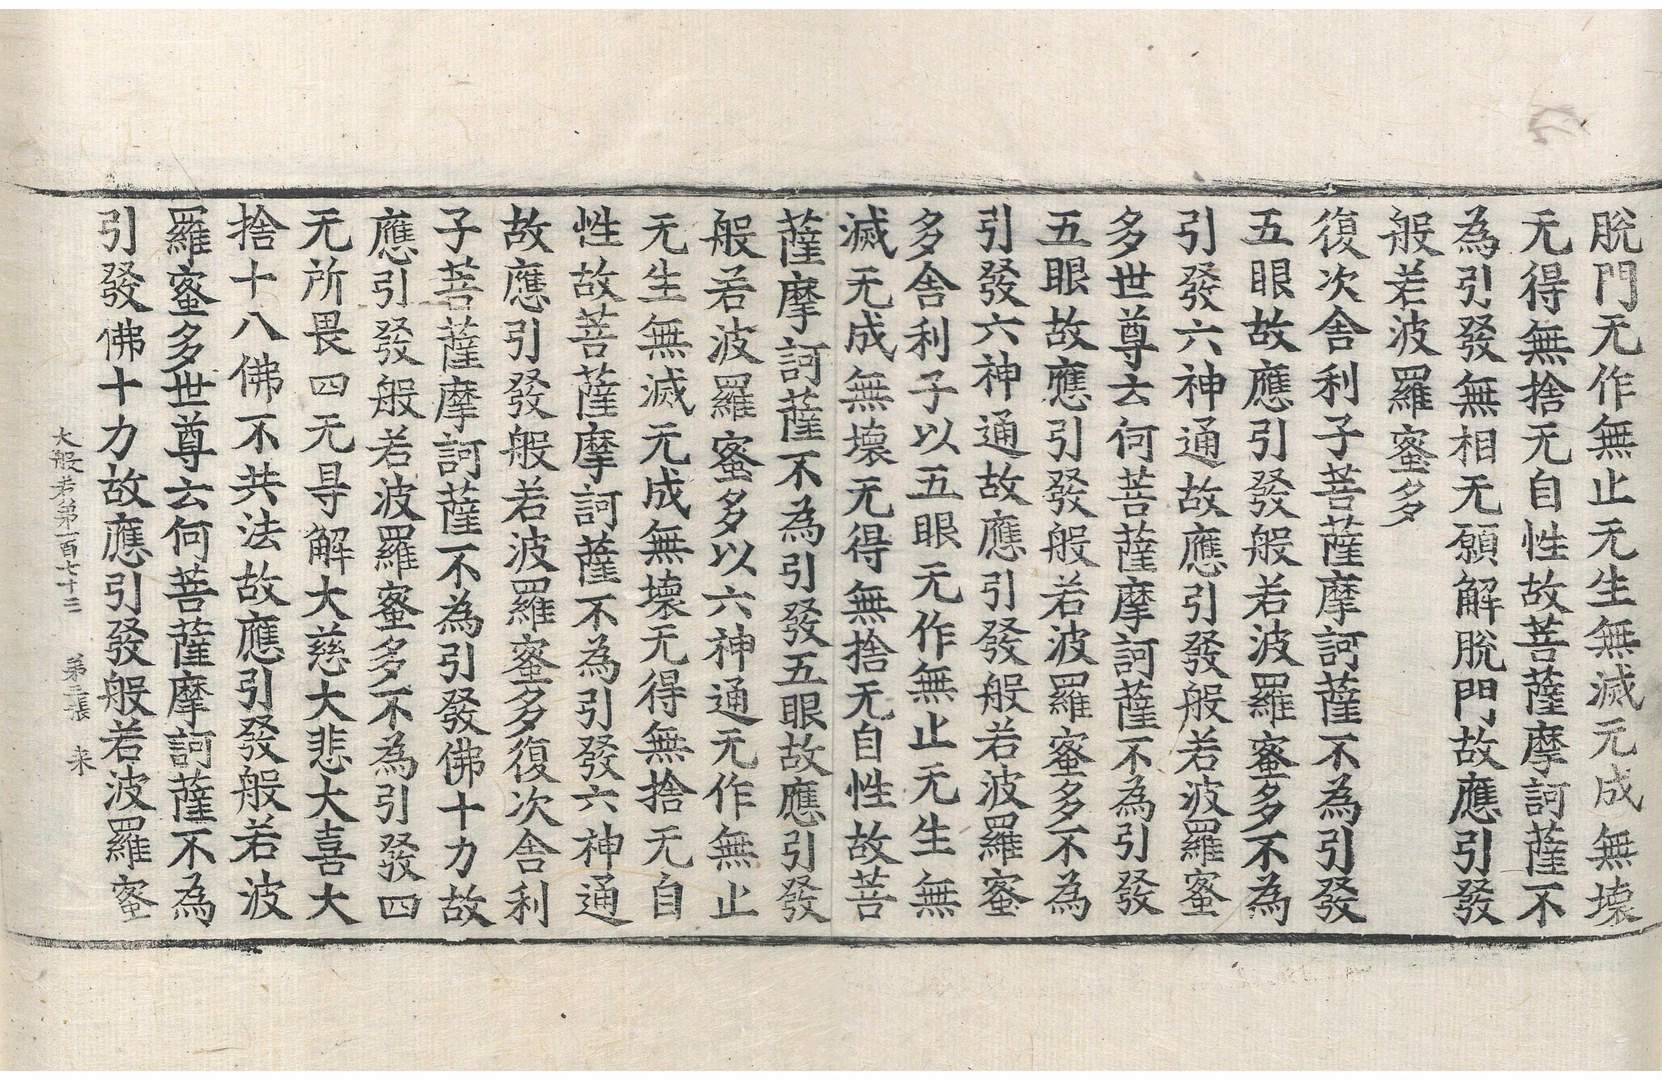 脫門无作無止无生無滅无成無壞
无得無捨无自性故菩薩摩訶薩不
為引發無相无願解脫門故應引發
般若波羅蜜多
復次舍利子菩薩摩訶薩不為引發
五眼故應引發般若波羅蜜多不為
引發六神通故應引發般若波羅蜜
多世尊云何菩薩摩訶薩不為引發
五眼故應引發般若波羅蜜多不為
引發六神通故應引發般若波羅蜜
多舍利子以五眼无作無止无生無
滅无成無壞无得無捨无自性故菩
薩摩訶薩不為引發五眼故應引發
般若波羅蜜多以六神通无作無止
无生無滅无成無壞无得無捨无自
性故菩薩摩訶薩不為引發六神通
故應引發般若波羅蜜多復次舍利
子菩薩摩訶薩不為引發佛十力故
應引發般若波羅蜜多不為引發四
无所畏四无㝵解大慈大悲大喜大
捨十八佛不共法故應引發般若波
羅蜜多世尊云何菩薩摩訶薩不為
引發佛十力故應引發般若波羅蜜
大般若第一百七十三 第三張 来